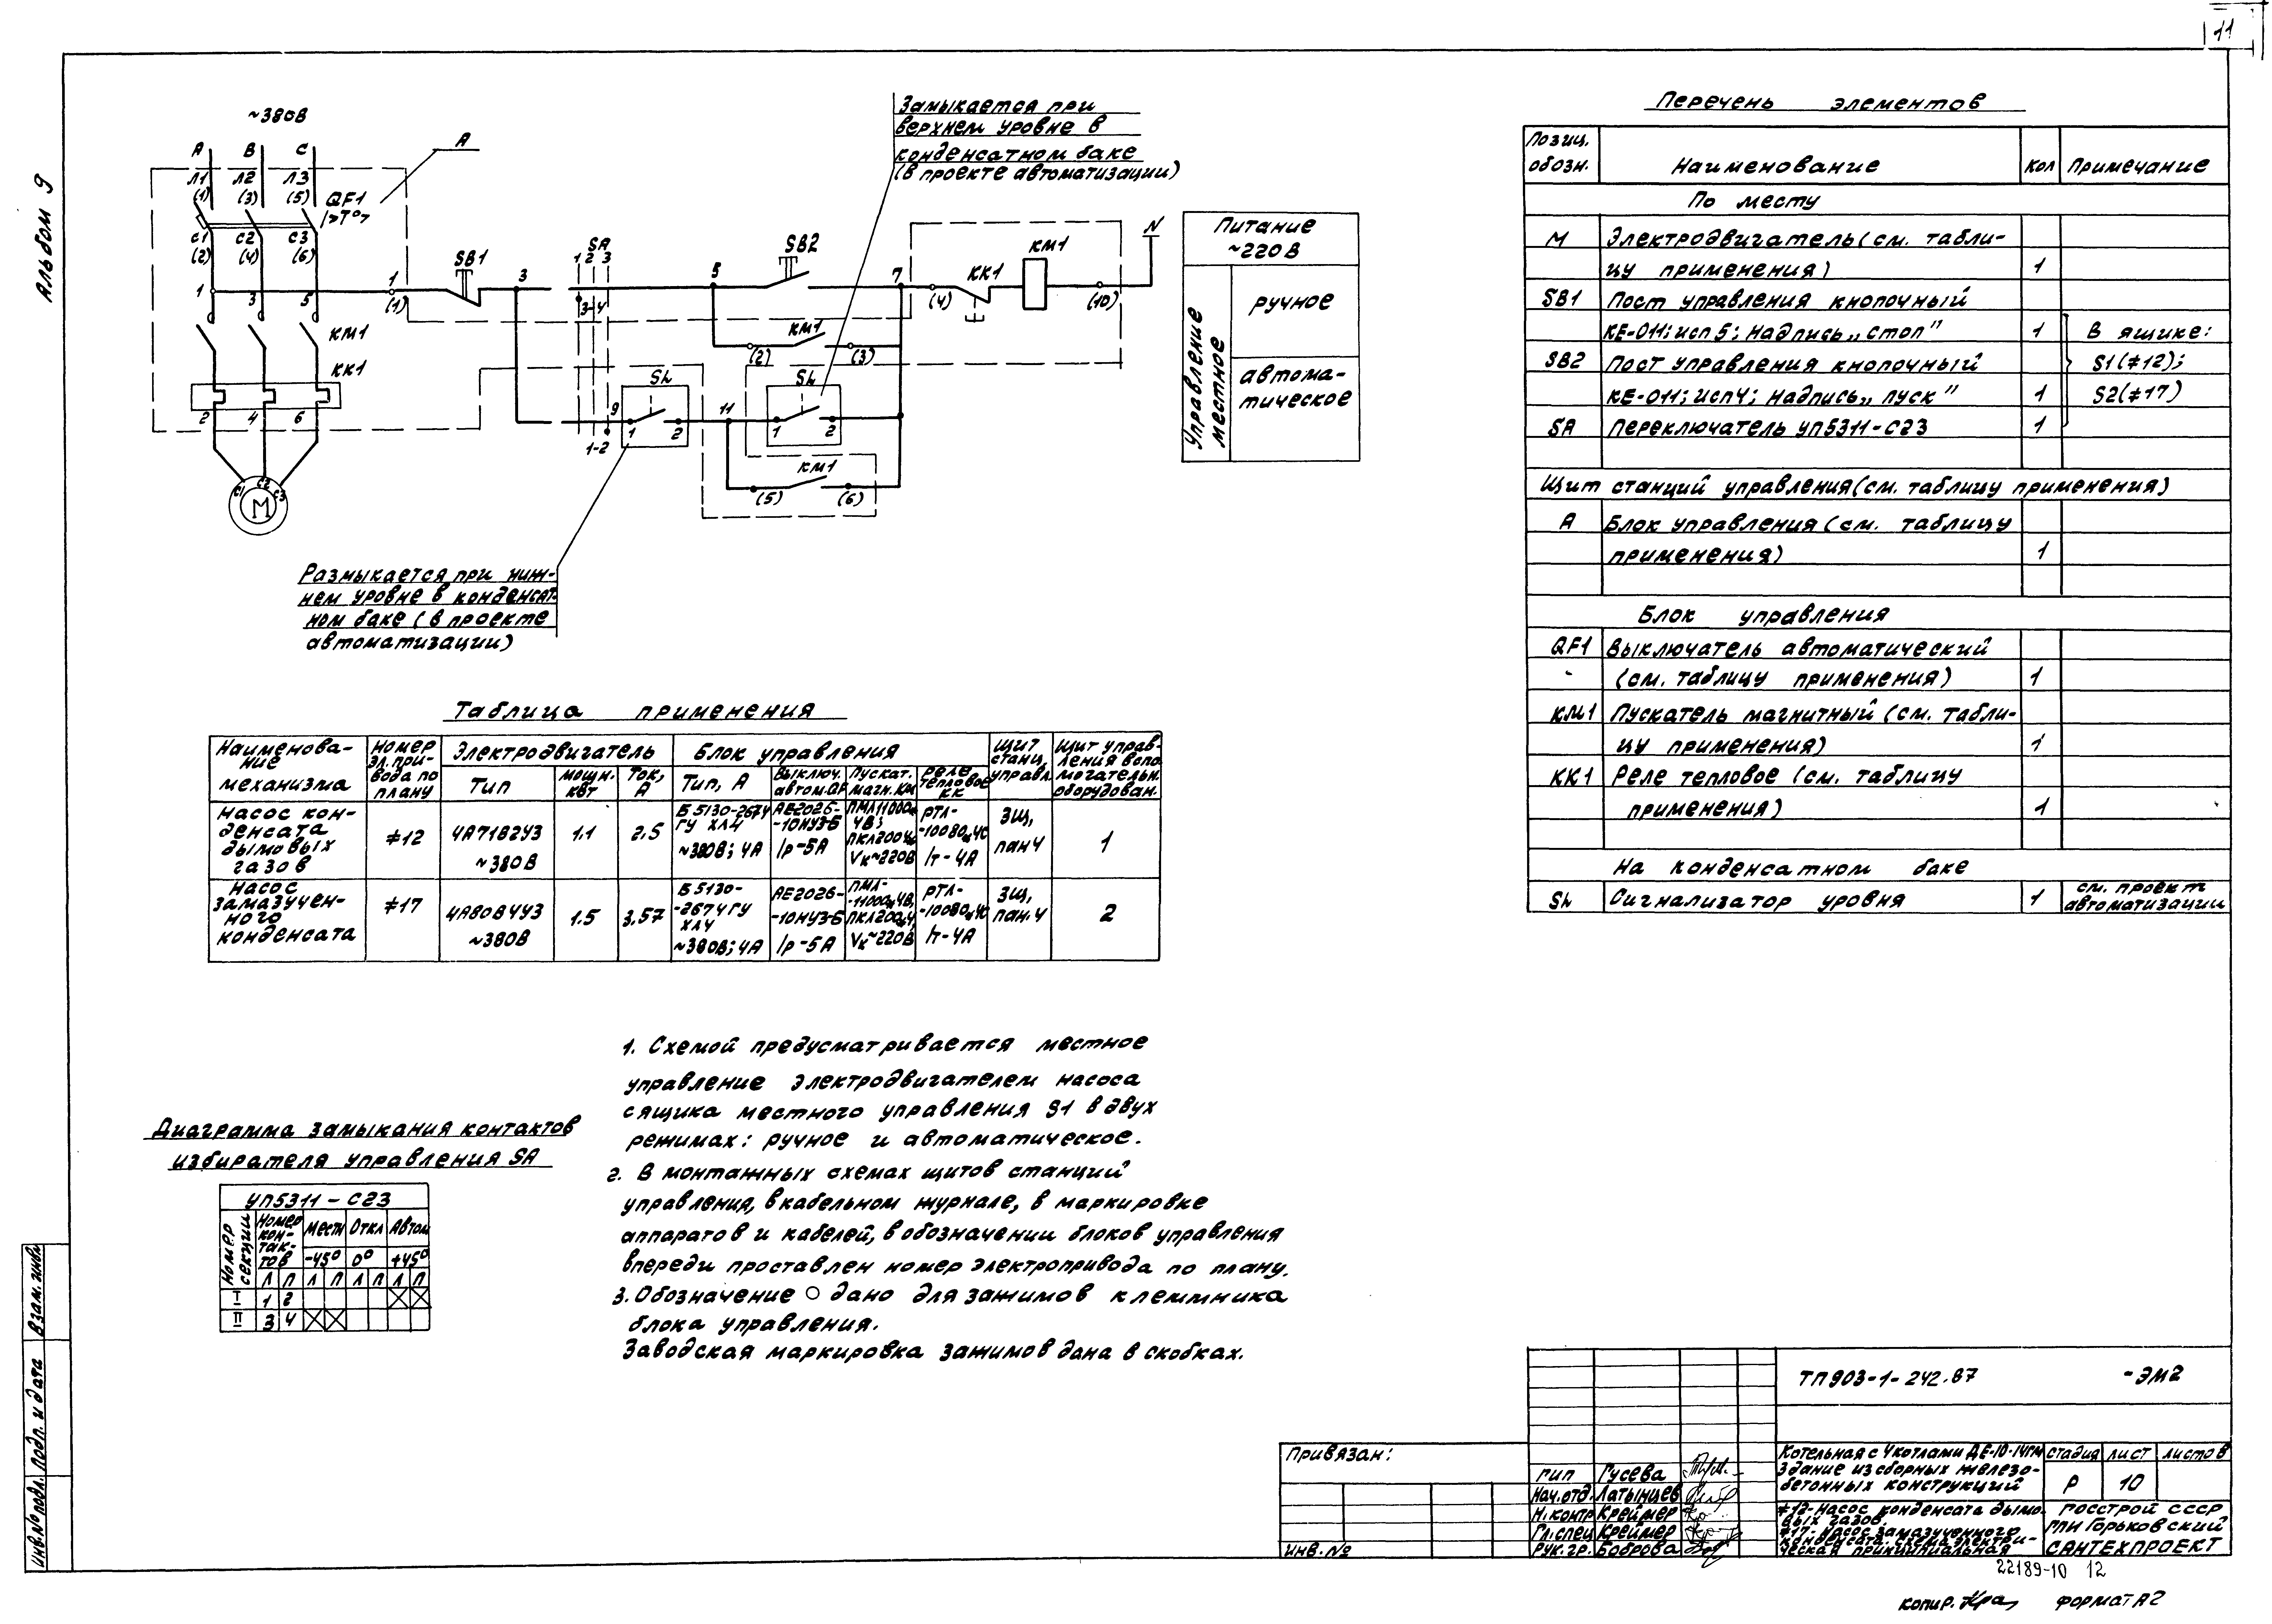 11
Альбом 9
~380В
А В С
Л1 Л2 Л3
(1) (3) (5)
QF1
А
С1 С2 С3
(2) (4) (6)
1 3 5
1
(1)
SB1
3
SA
1 2 3
3-4
5
SB2
7
(4)
КК1
КМ1
(10)
N
КМ1
КК1
2 4 6
С1 С2 С3
М
КМ1
(2) (3)
9
1-2
SL
1 2
11
SL
1 2
КМ1
(5) (6)
Замыкается при
верхнем уровне в
конденсатном баке
(в проекте автоматизации)
Размыкается при ниж-
нем уровне в конденсат-
ном баке (в проекте
автоматизации)
Питание
~220В
Управление
местное
ручное
автома-
тическое
Перечень элементов
Позиц. обозн. Наименование Кол Примечание
По месту
М Электродвигатель (см. табли-
цу применения) 1
SB1 Пост управления кнопочный
КЕ-011; исп 5; Надпись „стоп" 1 В ящике:
SB2 Пост управления кнопочный S1(#12);
КЕ-011; исп 4; Надпись „пуск" 1 S2(#17)
SA Переключатель УП5311-С23 1
Щит станций управления (см. таблицу применения)
А Блок управления (см. таблицу
применения) 1
Блок управления
QF1 Выключатель автоматический
(см. таблицу применения) 1
КМ1 Пускатель магнитный (см. табли-
цу применения) 1
КК1 Реле тепловое (см. таблицу
применения) 1
На конденсатном баке
SL Сигнализатор уровня 1 см. проект автоматизации
Таблица применения
Наименова-
ние
механизма
Номер
эл. при-
вода по
плану
Электродвигатель
Тип
мощн. кВт
Ток, А
Блок управления
Тип, А
Выключ. автом. QF
Пускат. магн. КМ
Реле тепловое КК
Щит
станц.
управл.
Щит управ-
ления вспо-
могательн.
оборудован.
Насос кон-
денсата
дымовых
газов
#12
4А71В2У3
~380В
1.1
2.5
Б5130-2674
ГУ ХЛ4
~380В; 4А
АЕ2026-
-10НУ3-Б
Iр-5А
ПКЛ200
Vк~220В
РТЛ-
Iт-4А
3Щ,
пан 4
1
Насос
замазучен-
ного
конденсата
#17
4А80В4У3
~380В
1.5
3.57
Б5130-
-2674ГУ
ХЛ4
~380В; 4А
АЕ2026-
-10НУ3-Б
Iр-5А
ПМЛ-
Vк~220В
РТЛ-
Iт-4А
3Щ,
пан. 4
2
1. Схемой предусматривается местное
управление электродвигателем насоса
с ящика местного управления S1 в двух
режимах: ручное и автоматическое.
2. В монтажных схемах щитов станций
управления, в кабельном журнале, в маркировке
аппаратов и кабелей, в обозначении блоков управления
впереди проставлен номер электропривода по плану.
3. Обозначение ○ дано для зажимов клеммника
блока управления.
Заводская маркировка зажимов дана в скобках.
Диаграмма замыкания контактов
избирателя управления SA
УП5311-С23
Номер
секции
Номер
кон-
так-
тов
Мест Откл Автом
-45° 0° +45°
Л П Л П Л П Л П
I 1 2
II 3 4
Взам. инв.
Подп. и дата
Инв. № подл.
Привязан:
Инв. №
ТП 903-1-242.87 -ЭМ2
ГИП Гусева
Нач. отд. Латынцев
Н. контр Креймер
Гл. спец Креймер
Рук. гр. Боброва
Котельная с 4 котлами ДЕ-10-14ГМ
Здание из сборных железо-
бетонных конструкций
стадия лист листов
Р 10
#12-Насос конденсата дымо-
вых газов.
#17-Насос замазученного
конденсата. Схема электри-
ческая принципиальная
Госстрой СССР
ГПИ Горьковский
САНТЕХПРОЕКТ
22189-10 12
копир. формат А2